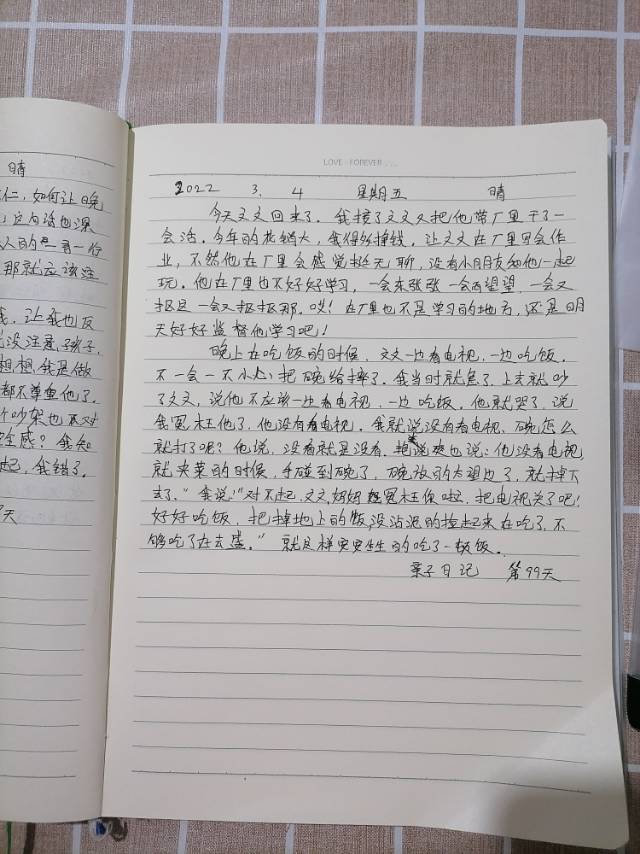 晴
仁，如何让晚
那就应该注
我，让我也反
没注意，孩子，
想想，我是做
都不尊重他了。
个吵架也不对
全感？我知
起，我错了。
天
LOVE FOREVER
2022 3. 4 星期五 晴
今天文文回来了。我接了文文又把他带厂里干了一
会活。今年的花销大，我得好挣钱。让文文在厂里写会作
业，不然他在厂里会感觉挺无聊，没有小朋友和他一起
玩。他在厂里也不好好学习，一会东张张一会西望望，一会又
抠这一会又抠抠那。哎！在厂里也不是学习的地方，还是明
天好好监督他学习吧！
晚上在吃饭的时候，文文一边看电视，一边吃饭。
不一会一不小心把碗给摔了。我当时就急了，上去就吵
了文文，说他不应该一边看电视，一边吃饭。他就哭了，说
我冤枉他了，他没有看电视。我就说没有看电视，碗怎么
就打了呢？他说，没看就是没看。爽也说：他没看电视
就夹菜的时候，手碰到碗了，碗放的太靠边了，就掉下
去了。“我说！”对不起，文文，妈妈冤枉你啦，把电视关了吧！
好好吃饭，把掉地上的饭没沾泥的捡起来在吃了，不
够吃了在去盛。”就这样安安生生的吃了一顿饭。
亲子日记 第99天